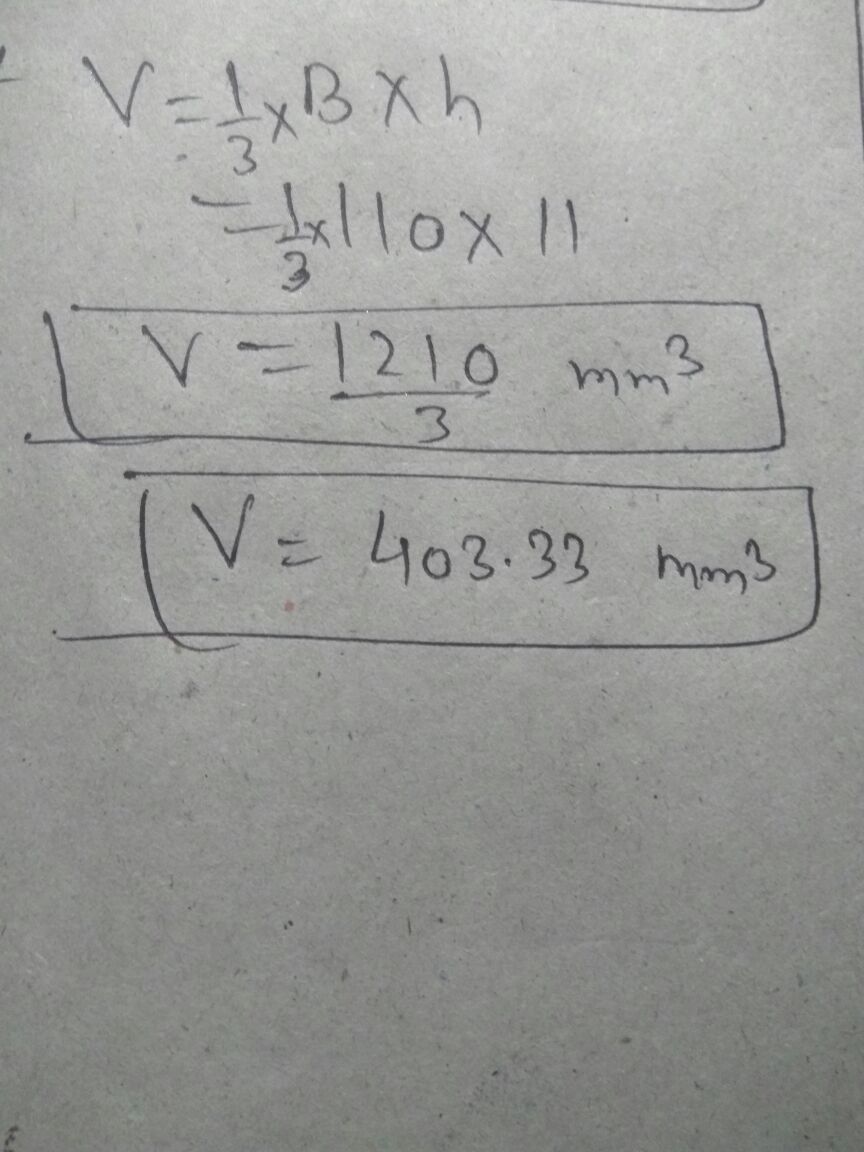 V = 1/3 × B × h
= 1/3 × 110 × 11
V = 1210/3 mm³
V = 403.33 mm³